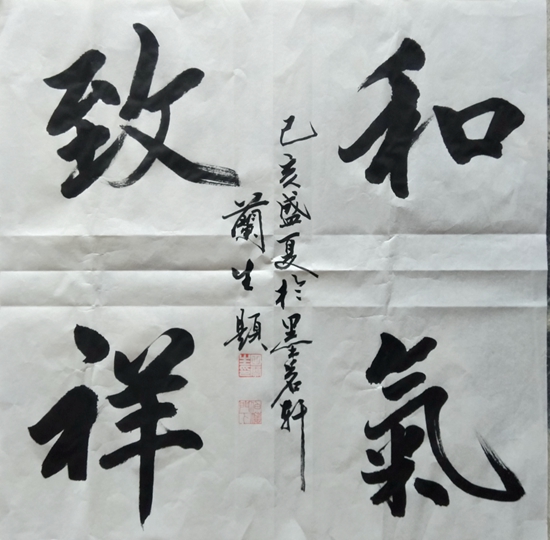 和氣
致祥
己亥盛夏於墨茗軒
蘭生題